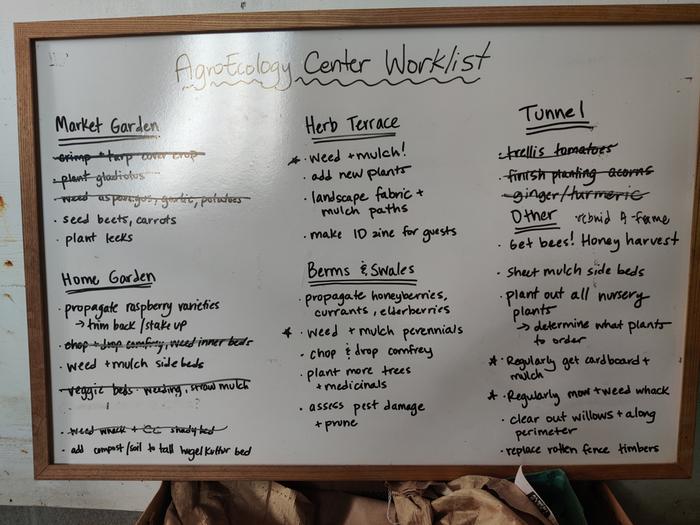 AgroEcology Center Worklist
Market Garden
· crimp + tarp cover crop
· plant gladiolus
· weed asparagus, garlic, potatoes
· seed beets, carrots
· plant leeks
Home Garden
· propagate raspberry varieties
→ trim back / stake up
· chop + drop comfrey, weed inner beds
· weed + mulch side beds
· veggie beds - weeding, straw mulch
· weed whack + CC shady bed
· add compost/soil to tall hugelkultur bed
Herb Terrace
★ · weed + mulch!
· add new plants
· landscape fabric +
mulch paths
· make ID zine for guests
Berms & Swales
· propagate honeyberries,
currants, elderberries
★ · weed + mulch perennials
· chop & drop comfrey
· plant more trees
+ medicinals
· assess pest damage
+ prune
Tunnel
· trellis tomatoes
· finish planting acorns
- ginger/turmeric
Other rebuild A-frame
· Get bees! Honey harvest
· sheet mulch side beds
· plant out all nursery
plants
→ determine what plants
to order
★ · Regularly get cardboard +
mulch
★ · Regularly mow + weed whack
· clear out willows + along
perimeter
· replace rotten fence timbers